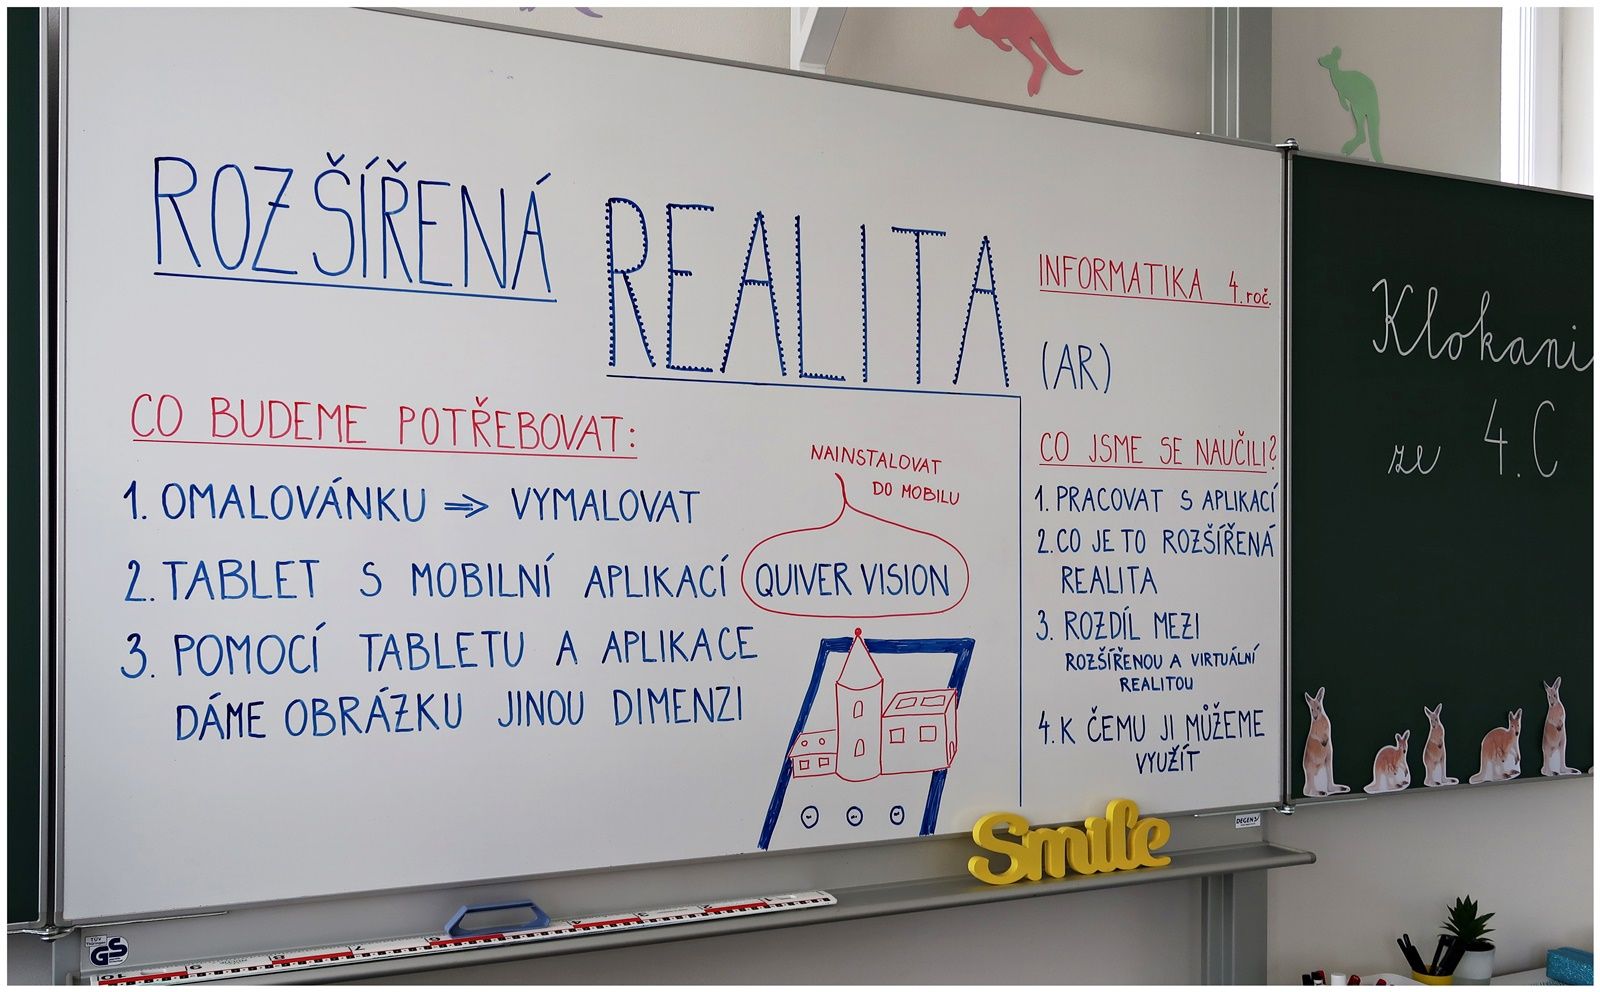 ROZŠÍŘENÁ
REALITA
INFORMATIKA 4. roč.
(AR)
CO BUDEME POTŘEBOVAT:
1. OMALOVÁNKU ⇒ VYMALOVAT
2. TABLET S MOBILNÍ APLIKACÍ QUIVER VISION
NAINSTALOVAT
DO MOBILU
3. POMOCÍ TABLETU A APLIKACE
DÁME OBRÁZKU JINOU DIMENZI
CO JSME SE NAUČILI?
1. PRACOVAT S APLIKACÍ
2. CO JE TO ROZŠÍŘENÁ
REALITA
3. ROZDÍL MEZI
ROZŠÍŘENOU A VIRTUÁLNÍ
REALITOU
4. K ČEMU JI MŮŽEME
VYUŽÍT
Klokani
ze 4.C
Smile
DEGEN
GS
10 9 8 7 6 5 4 3 2 1